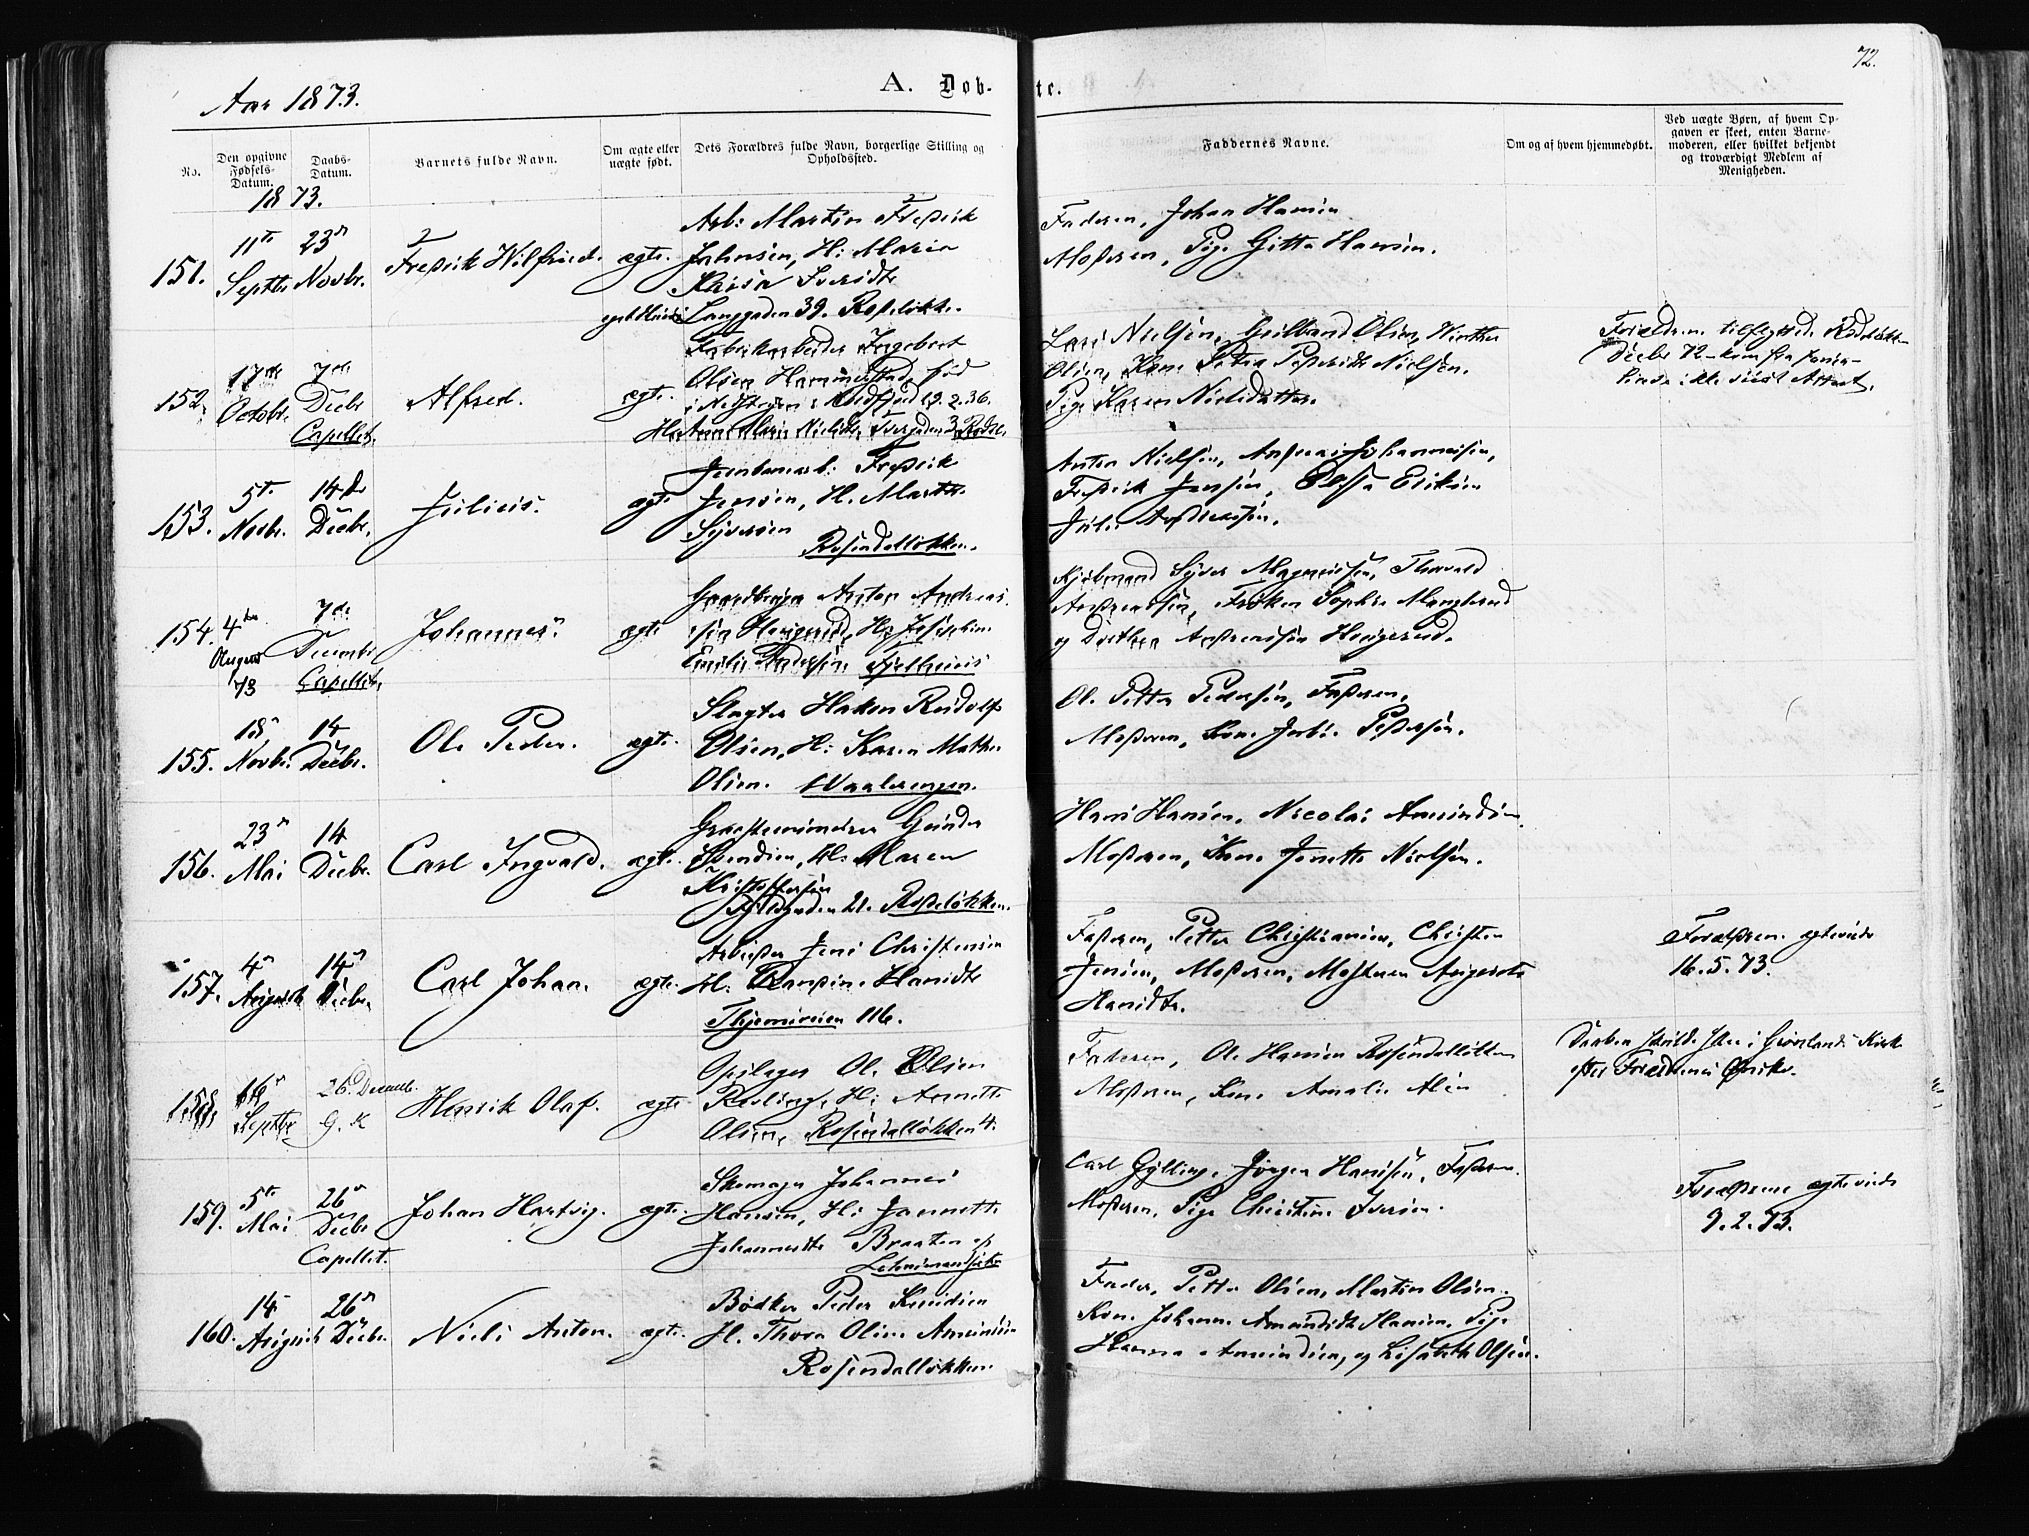 72.
Aar 1873.
A. Døb-
te.
No.
Den opgivne
Fødsels-
Datum.
Daabs-
Datum.
Barnets fulde Navn.
Om ægte eller
uægte født.
Dets Forældres fulde Navn, borgerlige Stilling og
Opholdssted.
Faddernes Navne.
Om og af hvem hjemmedøbt.
Ved uægte Børn, af hvem Op-
gaven er skeet, enten Barne-
moderen, eller hvilket bekjendt
og troværdigt Medlem af
Menigheden.
1873.
151.
11te
Septbr
23de
Novbr.
Fredrik Wilhelm.
ægte.
Arb: Martin Fredrik
Johnsen, H: Maria
Iversdtr
Langgaden 39. Rodeløkke.
Faderen, Johan Hansen
Moderen, Pige Gitta Hansen.
152.
17de
Octobr.
7de
Decbr
Capellet.
Alfred.
ægte.
Fabrikarbeider Ingebret
Olsen Hammerstad, fød
i Nordfjord 19.2.36.
Nielsdtr Tvergaden 3 Rodel.
Lars Nielsen, Gulbrand Olsen, Winther
Olsen, Kone Petra Pedersdtr Nielsen.
Pige Karen Nielsdatter.
Forældrene tilflyttede Rodeløkk.
Decbr 72 - kom fra
153.
5te
Novbr.
14de
Decbr.
Julius.
ægte
Jernbanearb: Fredrik
Jensen, H. Marthe
Syversen
Rosendalløkken.
Anton Nielsen, Andreas Johannesen,
Fredrik Jensen, Elissa Eriksen
Julie Andreassen.
154.
4de
August
73
7de
Decembr
Capellet.
Johannes.
ægte
Gaardbruger Anton Andreas-
sen Haugerud, H: Josephine
Emilie Andersen, Fjelhuus
Kjøbmand Syver Magnussen, Thorvald
Andreassen, Frøken Sophie Manglerud
og Dorthea Andreassen Haugerud.
155.
18de
Novbr.
14
Decbr.
Ole Peder.
ægte.
Slagter Haken Rudolf
Olsen, H: Karen Mathea
Olsen. Waalerengen.
Ole Petter Pedersen, Faderen,
Moderen, Kone Pedersen.
156.
23de
Mai
14
Decbr.
Carl Ingvald.
ægte.
Gunder
Svendsen, H: Maren
Kristoffersen
21. Rodeløkken.
Hans Hansen, Nicolai Amundsen,
Moderen, Kone Jenette Nielsen.
157.
4de
August
14de
Decbr.
Carl Johan.
ægte.
Arbeider Jens Christensen
H: Hansdtr
Thjemsveien 116.
Faderen, Petter Christiansen, Christen
Jensen, Moderen, Mosteren Augusta
Hansdtr.
Forældrene ægteviede
16.5.73.
158.
16de
Septbr
26 Decemb.
G. K
Henrik Olaf.
ægte
Opslager Ole Olsen
H: Annette
Olsen, Rosendalløkken 4.
Faderen, Ole Hansen Rosendalløkken
Moderen, Kone Amalie Alen
Daaben skulde skee i Grønlands Kirk
efter Forældrenes Ønske.
159.
5te
Mai
26de
Decbr
Capellet.
Johan Hartvig.
ægte.
Skomager Johannes
Hansen, H: Jannette
Johannesdtr Braaten af
Carl Gylling, Jørgen Hansen, Faderen.
Moderen, Pige Christine Iversen.
Forældrene ægteviede
9.2.73.
160.
14
August
26de
Decbr.
Niels Anton.
ægte.
Bødker Peder Knudsen
H. Thora Oline Amundsen
Rosendalløkken.
Fader, Petter Olsen, Martin Olsen.
Kone Johanne Amundsdtr Hansen. Pige
Hanna Amundsen, og Lisabeth Olsen.